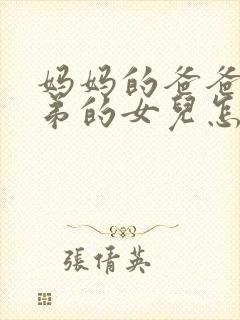 妈妈的爸爸
弟的女兒怎
張倩英